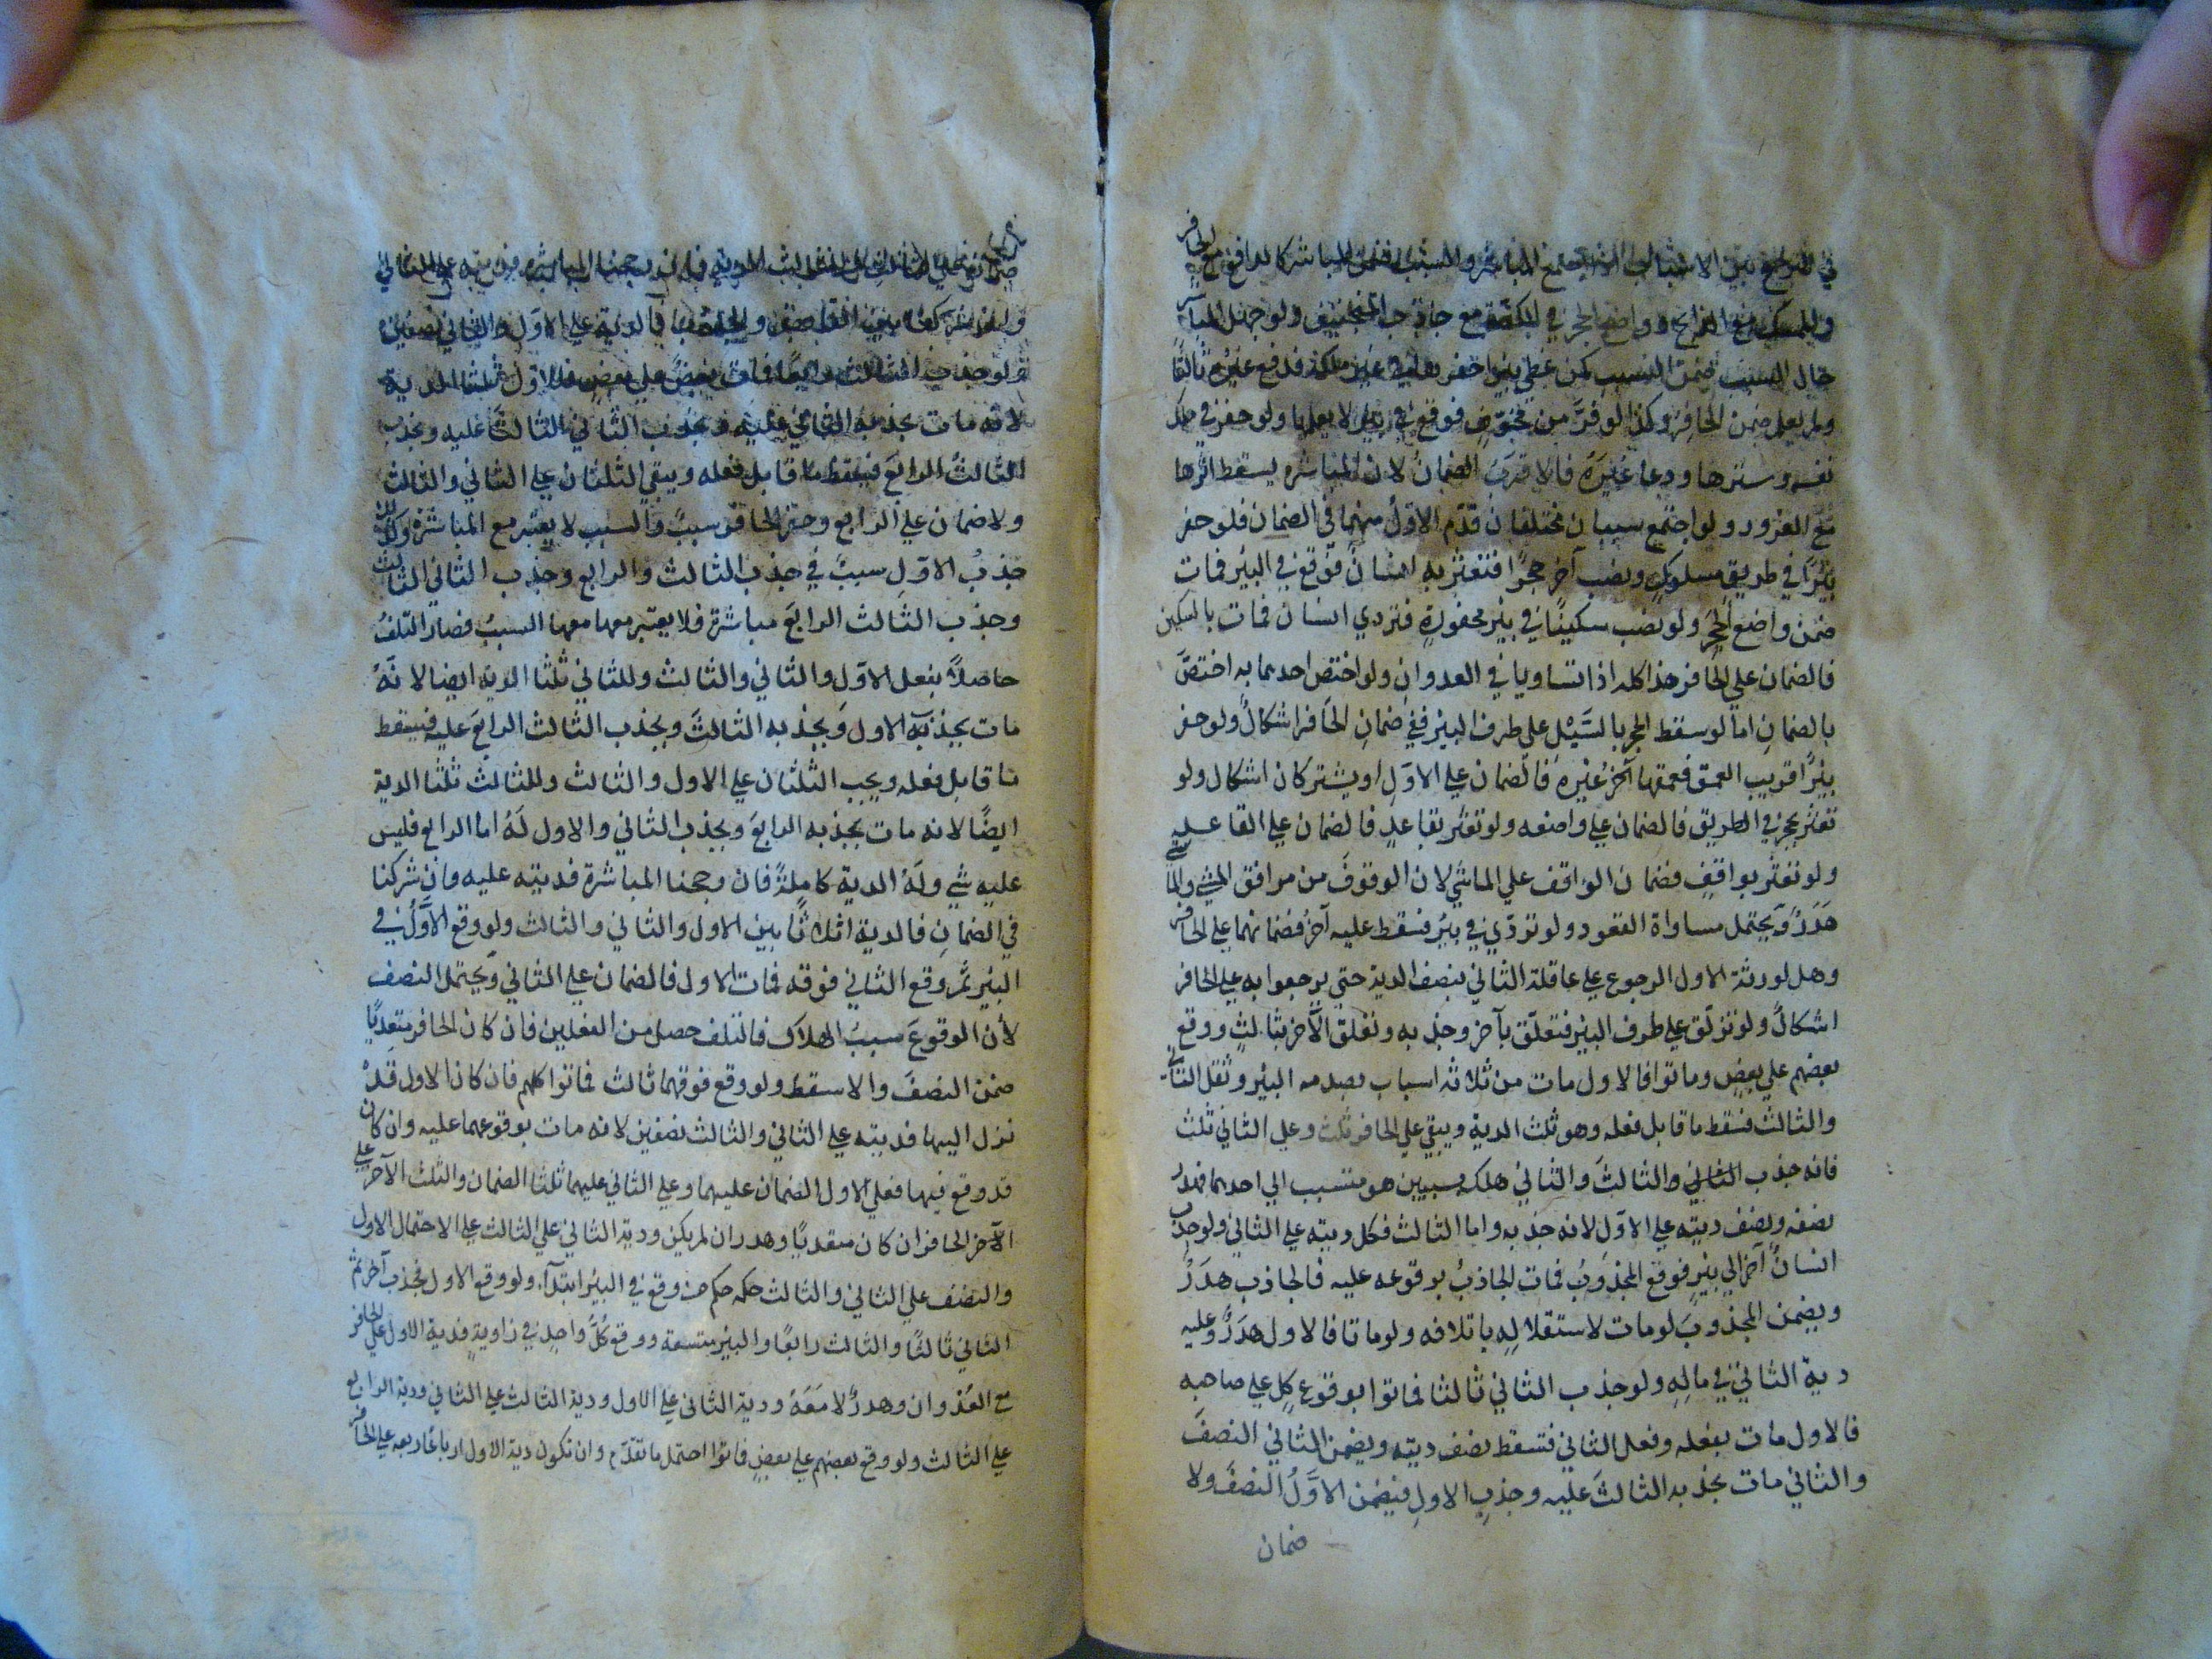 في الترجيح بين الاسباب اذا اجتمع المباشر والسبب ضمن المباشر كالدافع مع الحافر
والممسك مع الذابح وواضع الحجر في الكفة مع جاذب المنجنيق ولو جهل المباشر
حال السبب ضمن المسبب كمن غطى بئرا حفرها في غير ملكه فدفع غيره ثالثا
ولم يعلم ضمن الحافر وكذا لو فر من مخوف فوقع في بئر لا يعلمها ولو حفر في ملك
نفسه وسترها ودعا غيره فالاقرب الضمان لان المباشره يسقط اثرها
مع الغرور ولو اجتمع سببان مختلفان قدم الاول منهما في الضمان فلو حفر
بئرا في طريق مسلوك ونصب آخر حجرا فتعثر به انسان فوقع في البئر فمات
ضمن واضع الحجر ولو نصب سكينا في بئر محفورة فتردي انسان فمات بالسكين
فالضمان علي الحافر هذا كله اذا تساويا في العدوان ولو اختص احدهما به اختص
بالضمان اما لو سقط الحجر بالسيل علي طرف البئر ففي ضمان الحافر اشكال ولو حفر
بئرا قريب العمق فعمقها آخر غيره فالضمان علي الاول او يشتركان اشكال ولو
تعثر بحجر في الطريق فالضمان علي واضعه ولو تعثر بقاعد فالضمان علي القاعد
ولو تعثر بواقف فضمان الواقف علي الماشي لان الوقوف من مرافق المشي والماشي
هدر ويحتمل مساواة القعود ولو تردي في بئر فسقط عليه آخر فضمانهما علي الحافر
وهل لورثة الاول الرجوع علي عاقلة الثاني بنصف الدية حتي يرجعوا به علي الحافر
اشكال ولو تزلق علي طرف البئر فتعلق بآخر وجذبه وتعلق الآخر بثالث ووقع
بعضهم علي بعض وماتوا فالاول مات من ثلاثة اسباب بصدمه البئر وثقل الثاني
والثالث فسقط ما قابل فعله وهو ثلث الدية ويبقي علي الحافر ثلث وعلي الثاني ثلث
فانه جذب الثاني والثالث والثاني هلك بسببين هو متسبب الي احدهما فهدر
نصفه ونصف ديته علي الاول لانه جذبه واما الثالث فكل ديته علي الثاني ولو جذب
انسان آخر الي بئر فوقع المجذوب فمات الجاذب بوقوعه عليه فالجاذب هدر
ويضمن المجذوب لو مات لاستقلاله باتلافه ولو ماتا فالاول هدر وعليه
دية الثاني في ماله ولو جذب الثاني ثالثا فماتوا بوقوع كل علي صاحبه
فالاول مات بفعله وفعل الثاني فتسقط نصف ديته ويضمن الثاني النصف
والثاني مات بجذبه الثالث عليه وجذب الاول فيضمن الاول النصف ولا
ضمان
ضمان علي الثالث وللثالث الدية فان رجحنا المباشره فديته علي الثاني
وان شركنا بين القابض والجاذب فالدية علي الاول والثاني نصفين
ولو جذب الثالث رابعا فمات بعض علي بعض فللاول ثلثا الدية
لانه مات بجذبه الثاني عليه وبجذب الثاني الثالث عليه وبجذب
الثالث الرابع فيسقط ما قابل فعله ويبقي الثلثان علي الثاني والثالث
ولا ضمان علي الرابع وحفر الحافر سبب والسبب لا يعتبر مع المباشرة وكذا
جذب الاول سبب في جذب الثالث والرابع وجذب الثاني الثالث
وجذب الثالث الرابع مباشرة فلا يعتبر معها معها السبب فصار التلف
حاصلا بفعل الاول والثاني والثالث وللثاني ثلثا الدية ايضا لانه
مات بجذب الاول وبجذبه الثالث وبجذب الثالث الرابع عليه فيسقط
ما قابل فعله ويجب الثلثان علي الاول والثالث وللثالث ثلثا الدية
ايضا لانه مات بجذبه الرابع وبجذب الثاني والاول له اما الرابع فليس
عليه شي وله الدية كاملة فان رجحنا المباشرة فديته عليه وان شركنا
في الضمان فالدية اثلاثا بين الاول والثاني والثالث ولو وقع الاول في
البئر ثم وقع الثاني فوقه فمات الاول فالضمان علي الثاني ويحتمل النصف
لأن الوقوع سبب الهلاك فالتلف حصل من الفعلين فان كان الحافر متعديا
ضمن النصف والا سقط ولو وقع فوقهما ثالث فماتوا كلهم فان كان الاول قد
نزل اليها فديته علي الثاني والثالث نصفين لانه مات بوقوعهما عليه وان كان
قد وقع فيها فعلي الاول الضمان عليهما وعلي الثاني عليهما ثلثا الضمان والثلث الآخر علي
الآخر الحافر ان كان متعديا وهدر ان لم يكن ودية الثاني علي الثالث علي الاحتمال الاول
والنصف علي الثاني والثالث حكمه حكم من وقع في البئر ابتدآء ولو وقع الاول فجذب آخر ثم
الثاني ثالثا والثالث رابعا والبئر متسعة ووقع كل واحد في زاوية فدية الاول علي الحافر
مع العدوان وهدر لا معه ودية الثاني علي الاول ودية الثالث علي الثاني ودية الرابع
علي الثالث ولو وقع بعضهم علي بعض فماتوا احتمل ما تقدم وان تكون دية الاول ارباعا ربعه علي الحافر